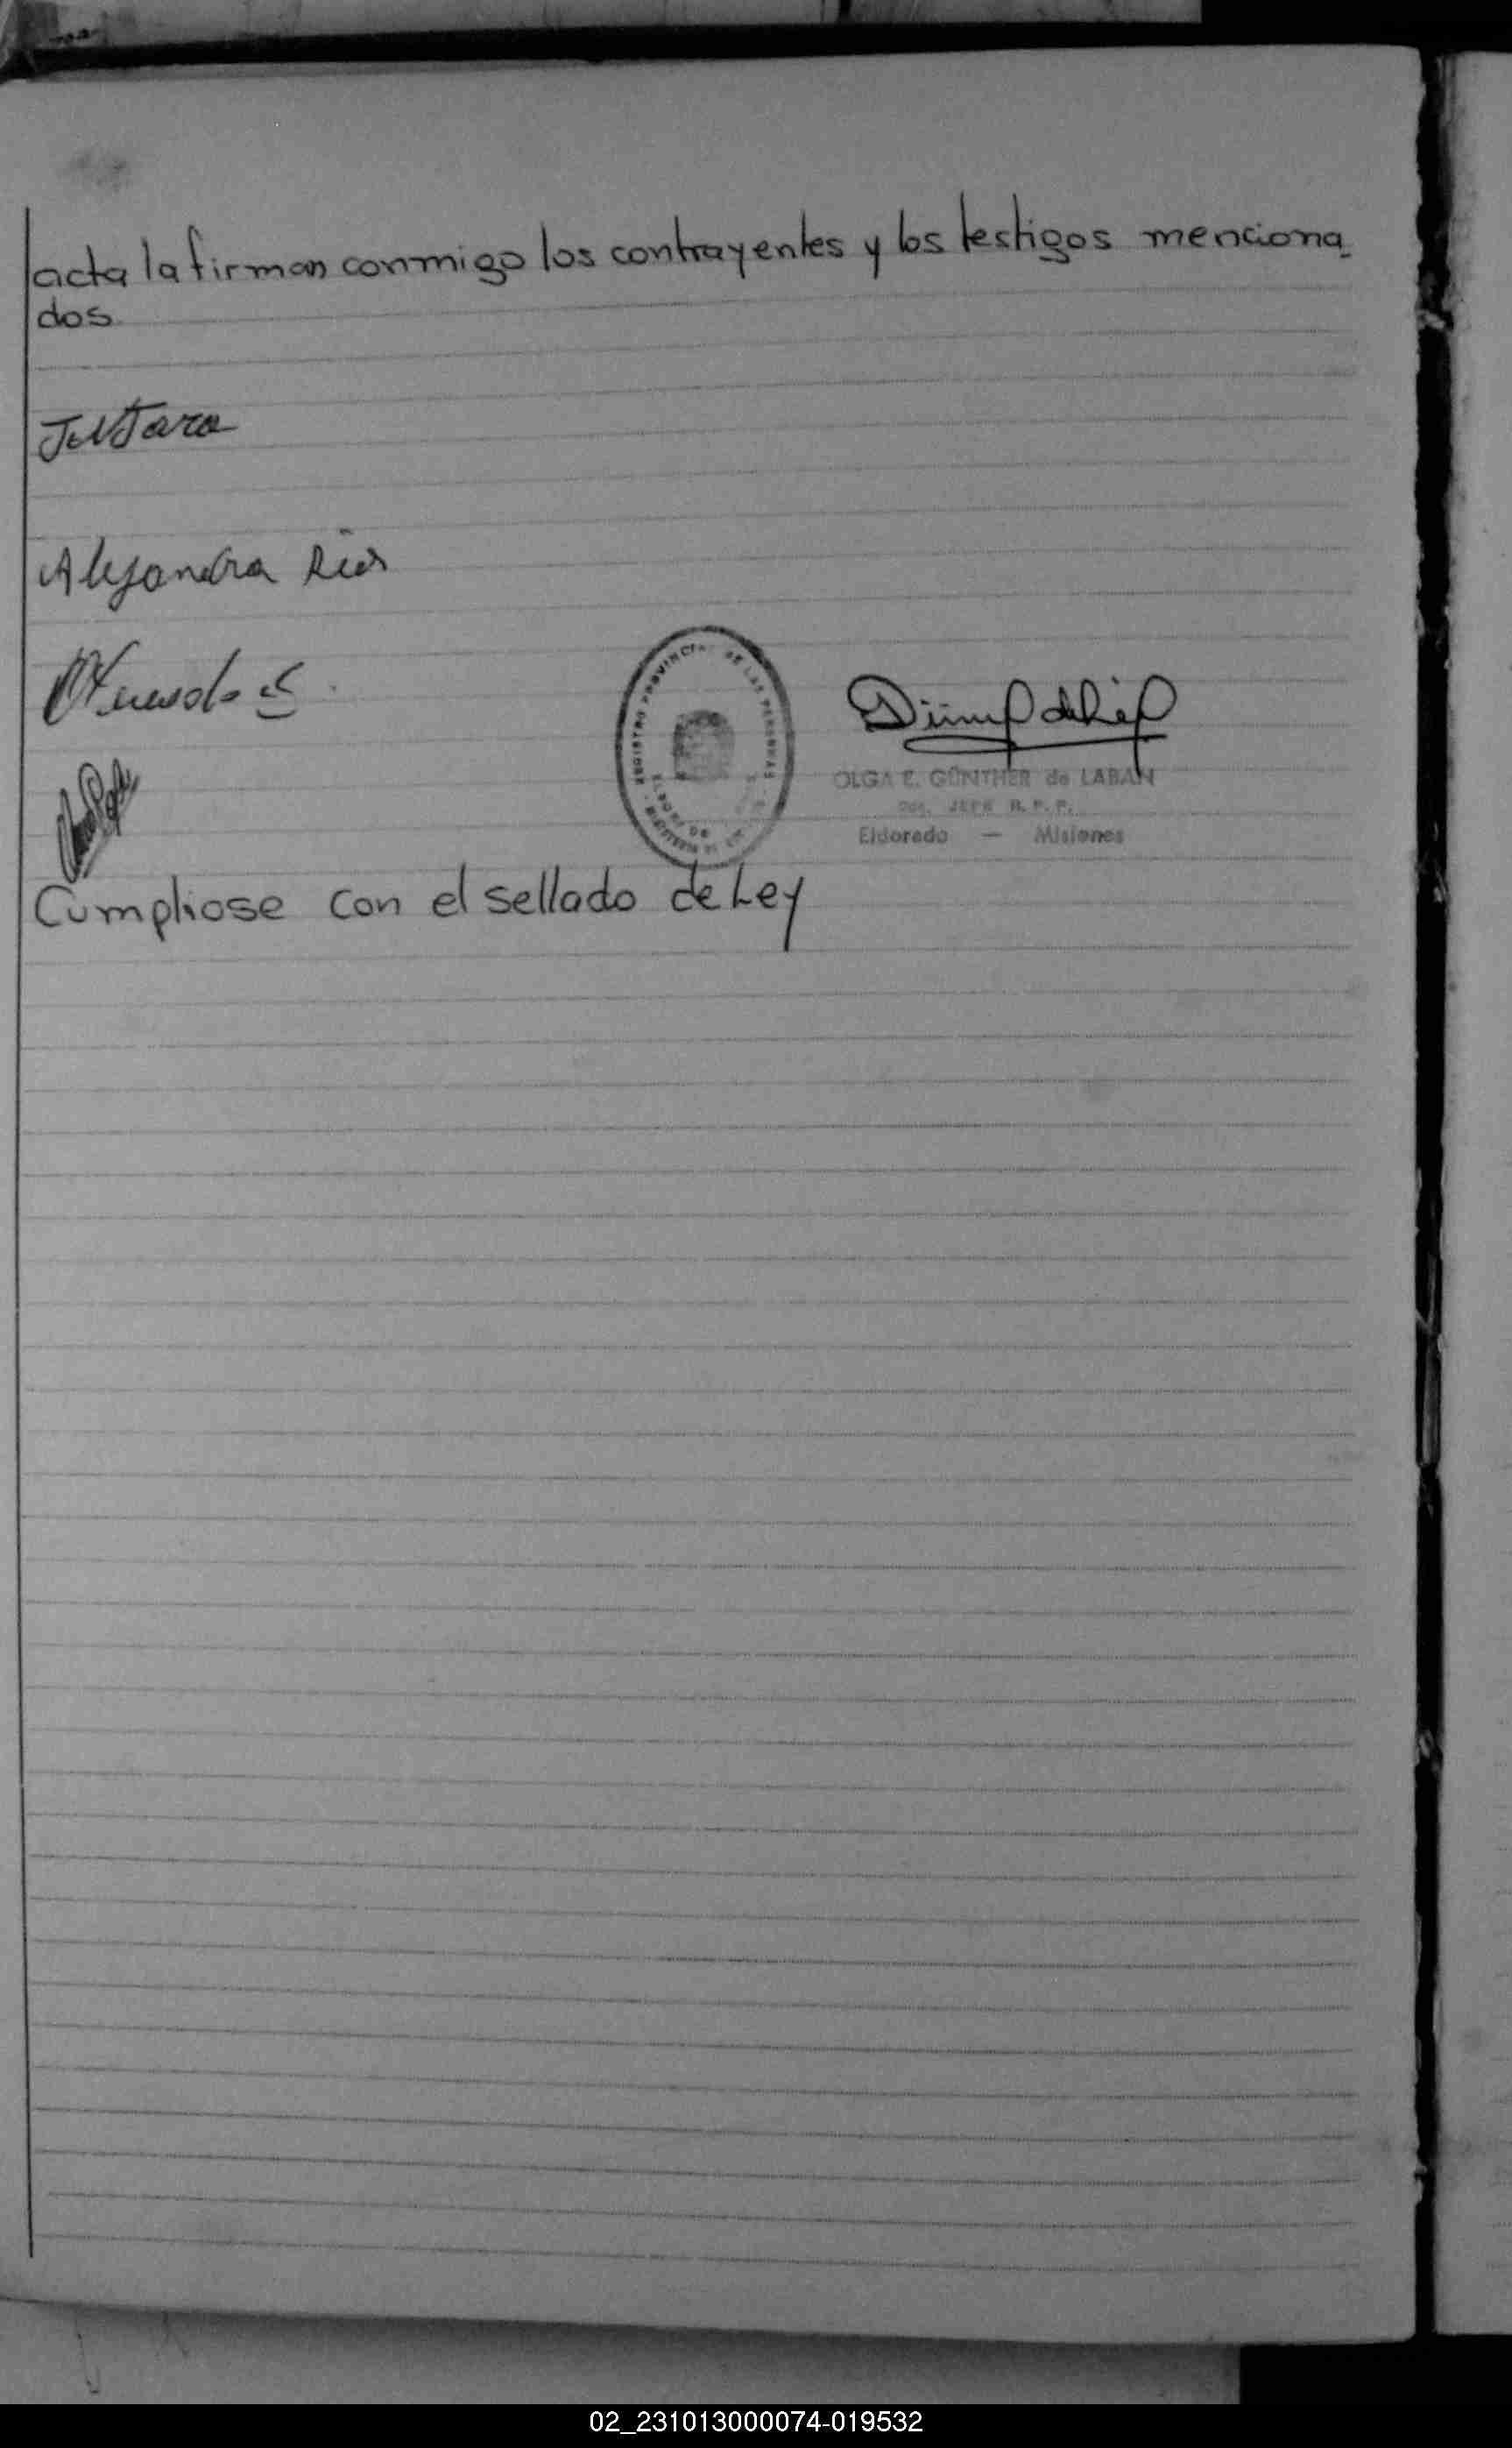 acta la firman conmigo los contrayentes y los testigos menciona-
dos
Alejandra Rios
REGISTRO PROVINCIAL DE LAS PERSONAS
OLGA E. GÜNTHER de LABAN
JEFE R. P. P.
Eldorado — Misiones
Cumpliose con el sellado de Ley
02_231013000074-019532